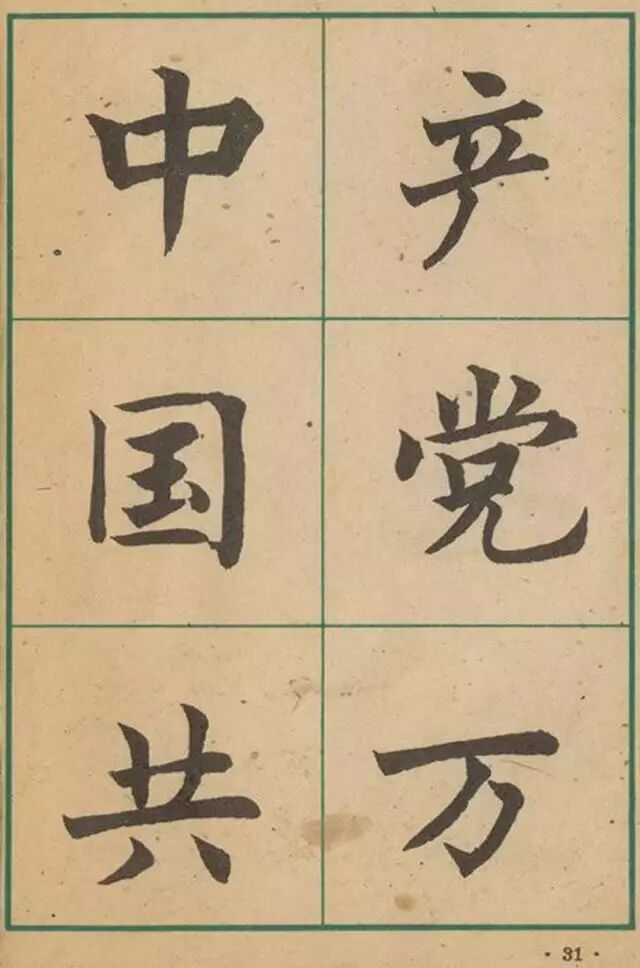 中国共
产党万
31